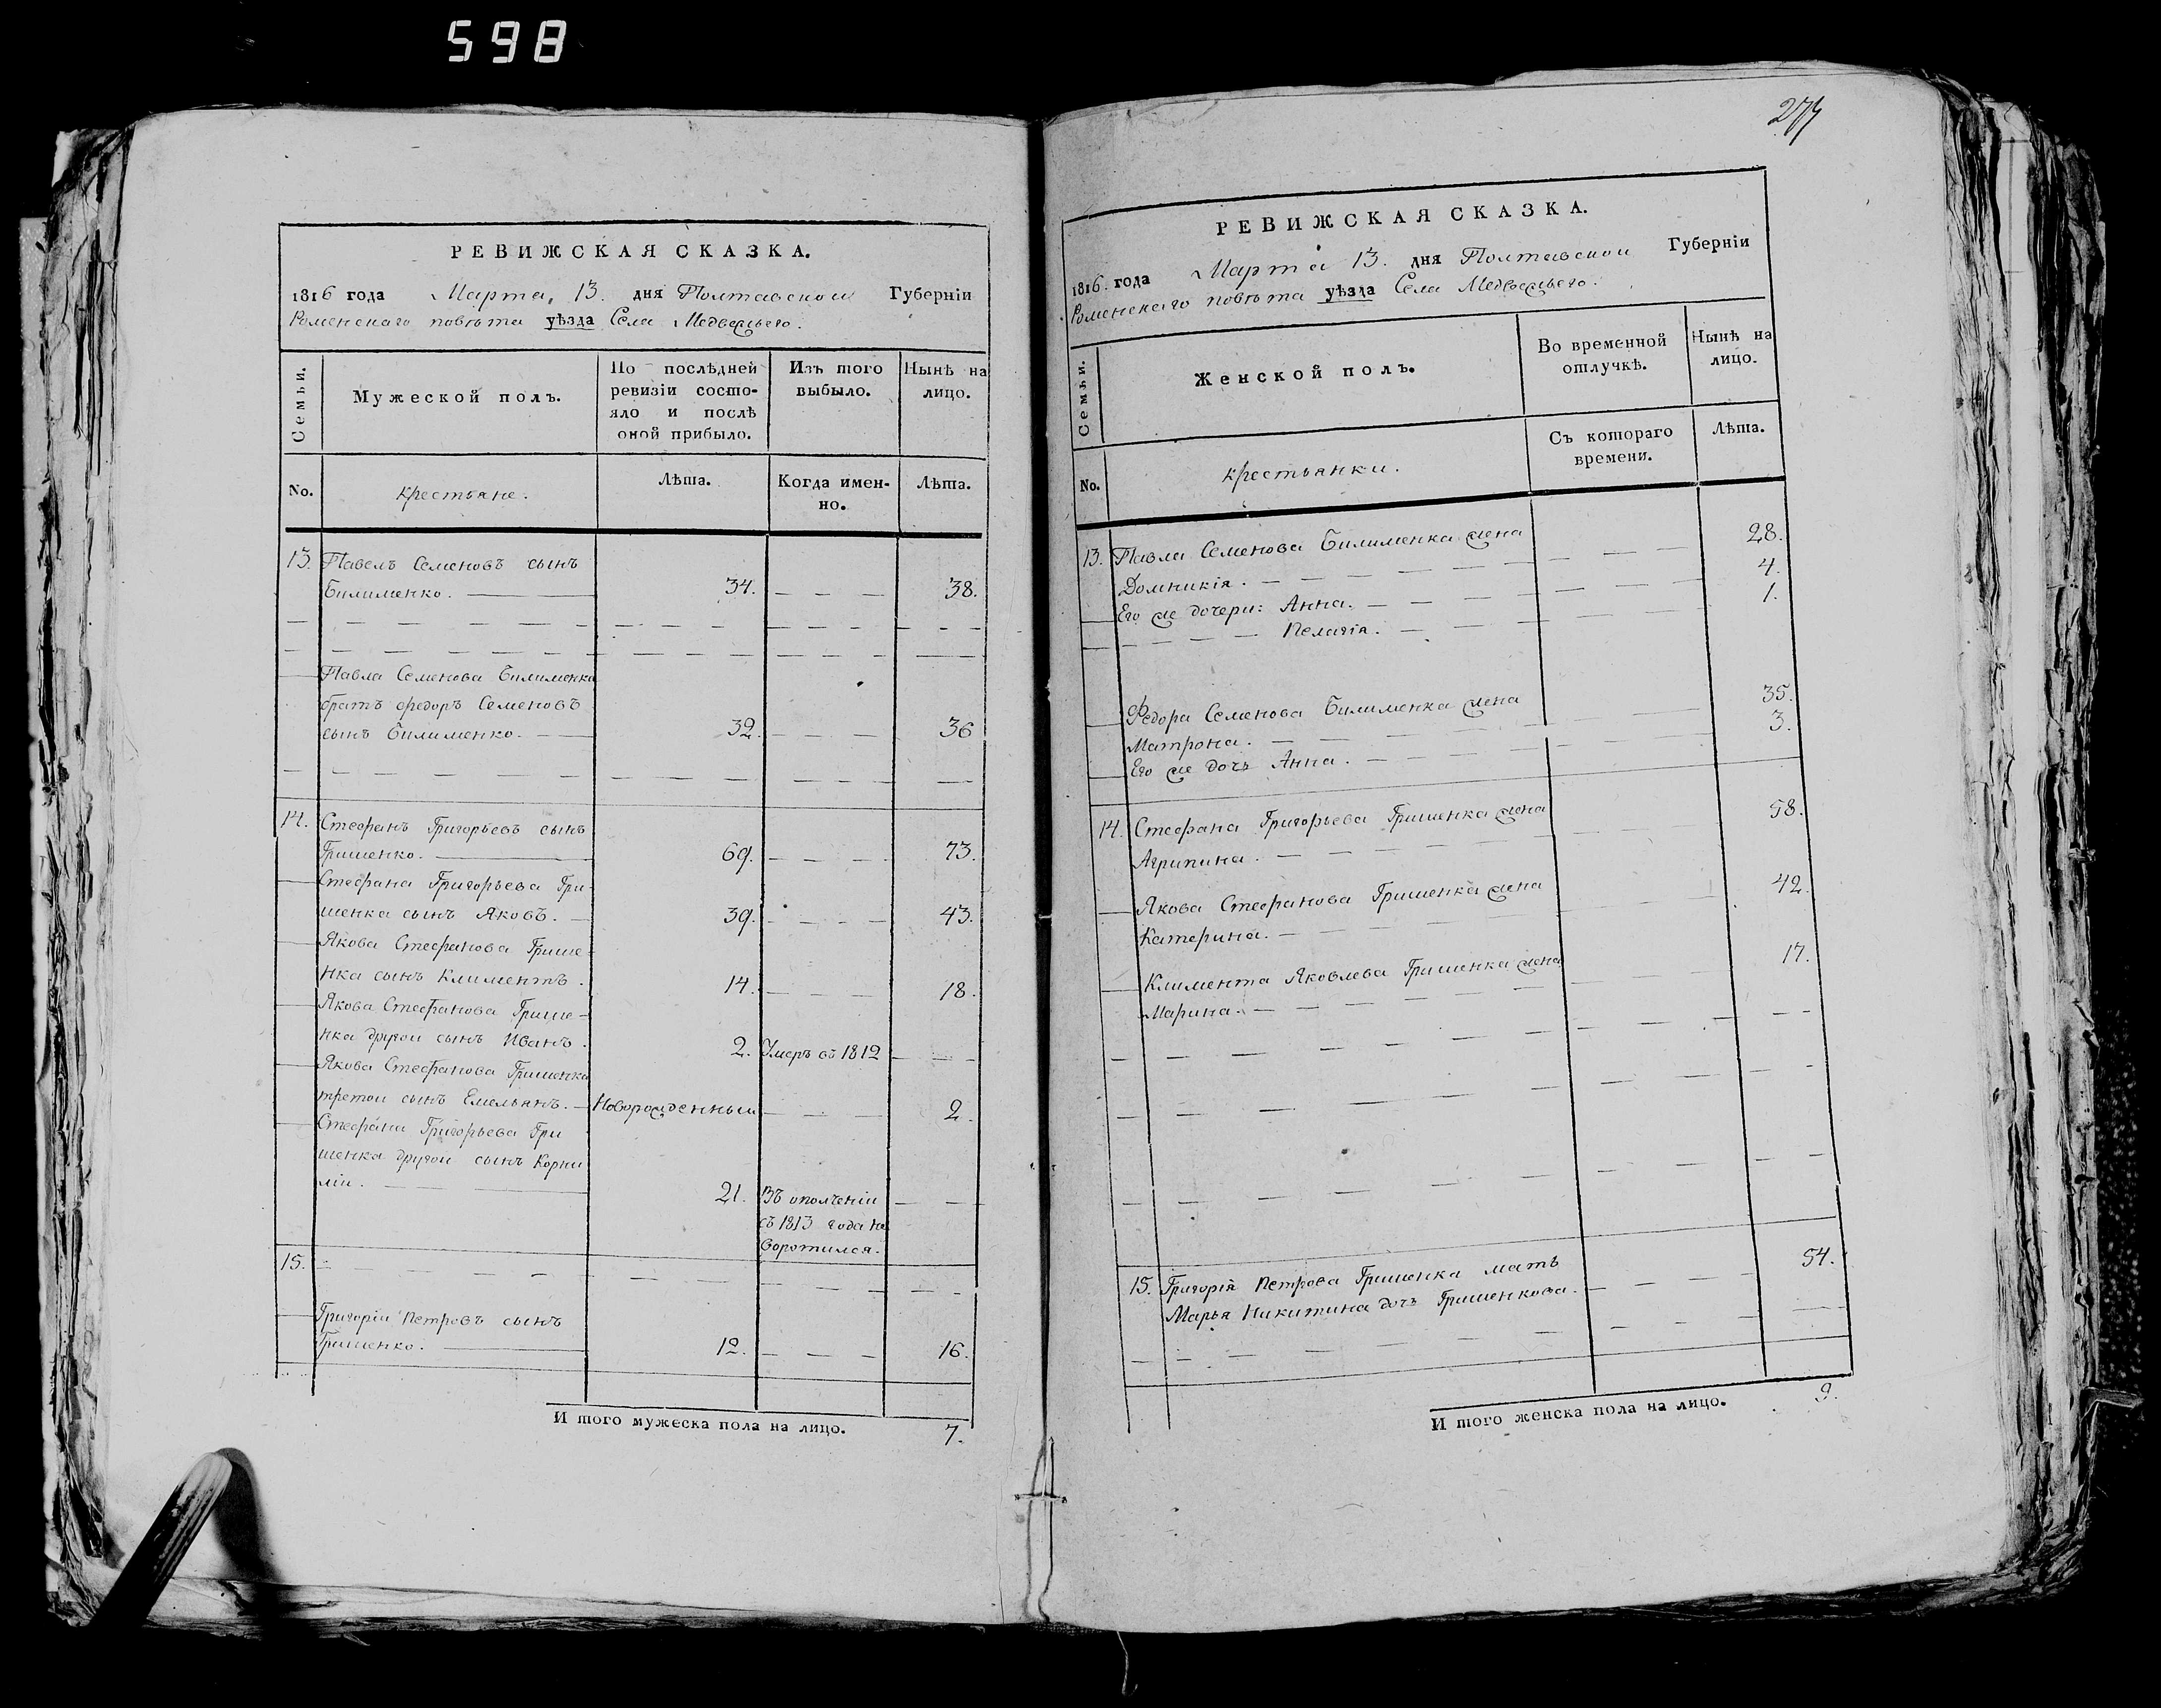 598
РЕВИЖСКАЯ СКАЗКА.
1816 года Марта, 13. дня Полтавской Губерніи
Роменскаго повѣта уѣзда Села Медвежьего.
Семьи.
Мужеской полъ.
По послѣдней
ревизіи состо-
яло и послѣ
оной прибыло.
Изъ того
выбыло.
Нынѣ на
лицо.
No.
крестьяне.
Лѣта.
Когда имен-
но.
Лѣта.
13. Павелъ Семеновъ сынъ
Билименко. 34. 38.
Павла Семенова Билименка
братъ федоръ Семеновъ
сынъ Билименко. 32. 36
14. Стефанъ Григорьевъ сынъ
Гришенко. 69. 73.
Стефана Григорьева Гри-
шенка сынъ Яковъ. 39. 43.
Якова Стефанова Грише-
нка сынъ Климентъ. 14. 18.
Якова Стефанова Грише-
нка другои сынъ Иванъ. 2. Умеръ въ 1812
Якова Стефанова Гришенка
третои сынъ Емельянъ. Новорожденныи 2.
Стефана Григорьева Гри
шенка другои сынъ Корни
ліи. 21. Въ ополченіи
съ 1813 года не
воротился.
15.
Григоріи Петровъ сынъ
Гришенко. 12. 16.
И того мужеска пола на лицо. 7.
РЕВИЖСКАЯ СКАЗКА.
1816. года Марта 13. дня Полтавскои Губерніи
Роменскаго повѣта уѣзда Села Медвежьего.
Семьи.
Женской полъ.
Во временной
отлучкѣ.
Нынѣ на
лицо.
No.
крестьянки.
Съ котораго
времени.
Лѣта.
13. Павла Семенова Билименка жена
Домникія. 28.
Его же дочери: Анна. 4.
Пелагія. 1.
Федора Семенова Билименка жена
Матрона. 35.
Его же дочь Анна. 3.
14. Стефана Григорьева Гришенка жена
Агрипина. 58.
Якова Стефанова Гришенка жена
Катерина. 42.
Климента Яковлева Гришенка жена
Марина. 17.
15. Григорія Петрова Гришенка мать
Марья Никитина дочь Гришенкова. 54.
И того женска пола на лицо. 9.